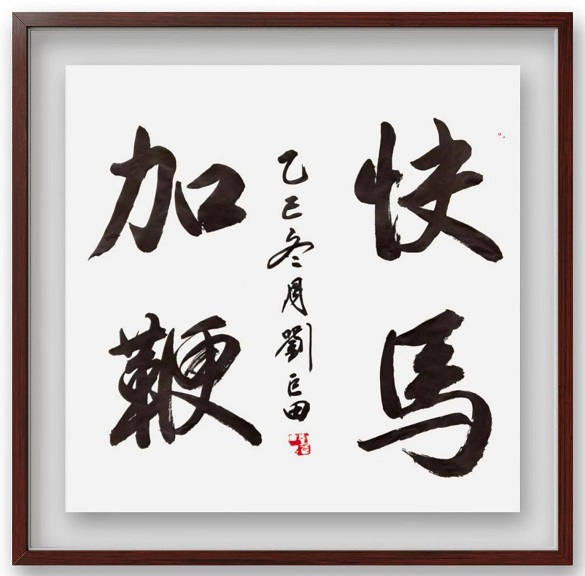 快馬
加鞭
乙巳冬月劉巨田